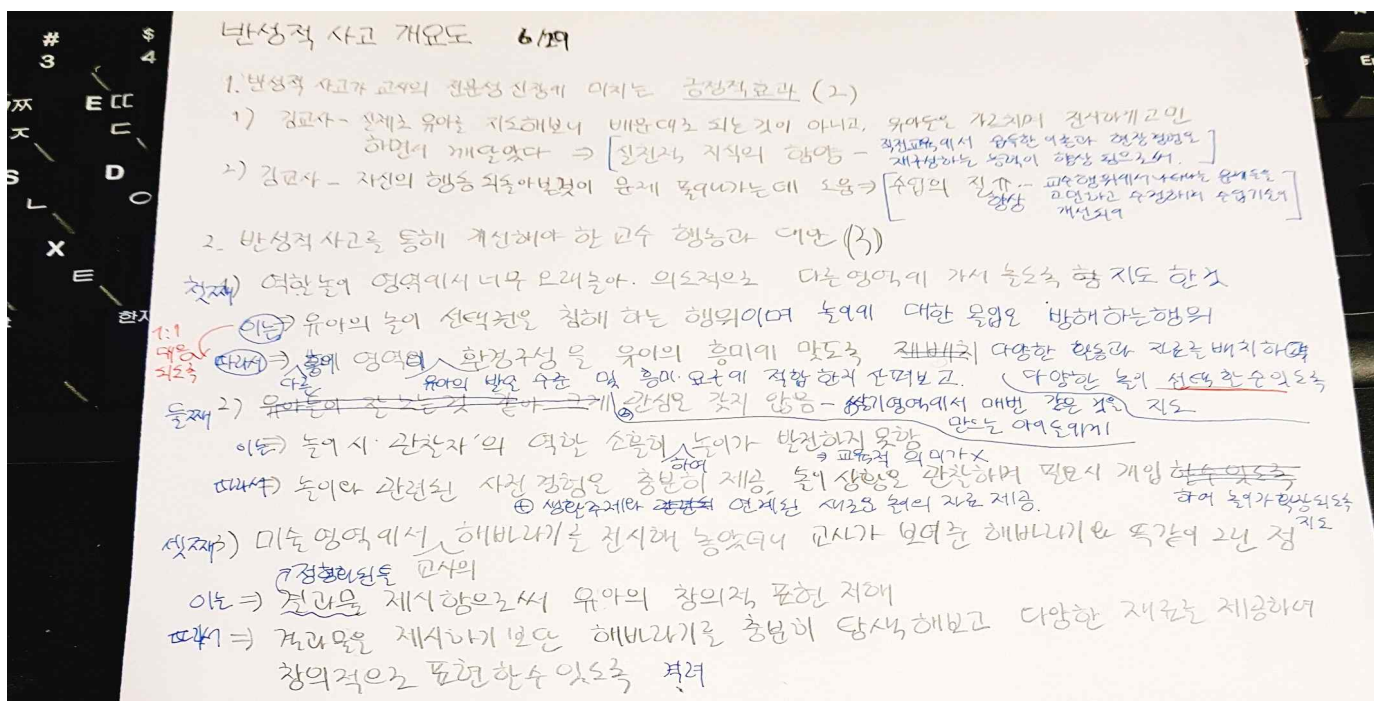 반성적 사고 개요도 6/29
1. 반성적 사고가 교사의 전문성 신장에 미치는 긍정적효과 (2)
1) 김교사 - 실제로 유아를 지도해보니 배운대로 되는 것이 아니고, 유아들을 가르치며 진지하게 고민
하면서 깨달았다 ⇒ [실천적 지식의 함양 - 직전교육에서 습득한 이론과 현장경험을
재구성하는 능력이 향상 됨으로써.]
2) 김교사 - 자신의 행동 되돌아본것이 문제 풀어나가는데 도움 ⇒ [수업의 질 향상 - 교수행위에서 나타나는 문제들을
고민하고 수정하며 수업기술이
개선되어]
2. 반성적 사고를 통해 개선해야 할 교수 행동과 대안 (3)
첫째) 역할놀이 영역에서 너무 오래놀아. 의도적으로 다른영역에 가서 놀도록 함 지도 한 것
이는 ⇒ 유아의 놀이 선택권을 침해 하는 행위이며 놀이에 대한 몰입을 방해하는행위
1:1
대응
되도록
따라서 ⇒ 흥미 영역의 환경구성을 유아의 흥미에 맞도록 재배치 다양한 활동과 자료를 배치하여
다른 유아의 발달 수준 및 흥미·요구에 적합한지 살펴보고. 다양한 놀이 선택할수있도록
둘째 2) 유아들이 잘 노는것 같아 크게 관심을 갖지 않음 - 쌓기영역에서 매번 같은 것을 지도
만드는 아이들에게
이는 ⇒ 놀이시 '관찰자'의 역할 소홀히 하여 놀이가 발전하지 못함
→ 교육적 의미가 X
따라서 ⇒ 놀이와 관련된 사전 경험을 충분히 제공, 놀이 상황을 관찰하며 필요시 개입 할수있도록
⊕ 생활주제와 관련된 연계된 새로운 놀이 자료 제공. 하여 놀이가 확장되도록
지도
셋째 3) 미술영역에서 해바라기를 전시해 놓았더니 교사가 보여준 해바라기와 똑같이 그린 점
정형화된 틀 교사의
이는 ⇒ 결과물 제시함으로써 유아의 창의적 표현 저해
따라서 ⇒ 결과물을 제시하기 보단 해바라기를 충분히 탐색해보고 다양한 재료를 제공하여
창의적으로 표현할수 있도록 격려
#
3
$
4
E
ㄸ
ㄷ
S
D
ㄴ
ㅇ
X
ㅌ